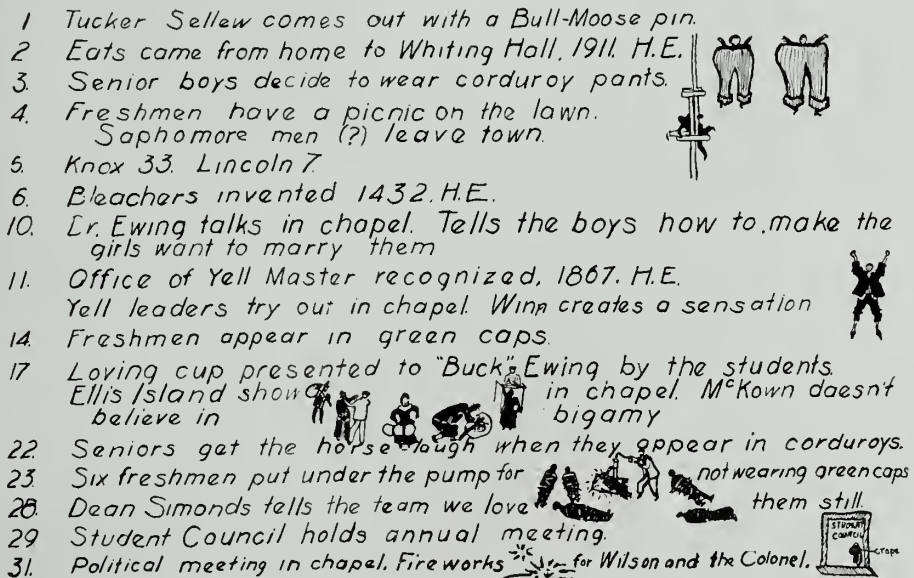 1 Tucker Sellew comes out with a Bull-Moose pin.
2 Eats came from home to Whiting Hall, 1911. H.E.
3. Senior boys decide to wear corduroy pants.
4. Freshmen have a picnic on the lawn.
Saphomore men (?) leave town.
5. Knox 33. Lincoln 7.
6. Bleachers invented 1432. H.E.
10. Dr. Ewing talks in chapel. Tells the boys how to make the
girls want to marry them
11. Office of Yell Master recognized, 1867. H.E.
Yell leaders try out in chapel. Winn creates a sensation
14. Freshmen appear in green caps.
17 Loving cup presented to "Buck" Ewing by the students.
Ellis Island show in chapel. McKown daesn't
believe in bigamy
22. Seniors get the horse-laugh when they appear in corduroys.
23. Six freshmen put under the pump for not wearing green caps
28. Dean Simonds tells the team we love them still.
29 Student Council holds annual meeting.
STUDENT
COUNCIL
crape
31. Political meeting in chapel. Fireworks for Wilson and the Colonel.